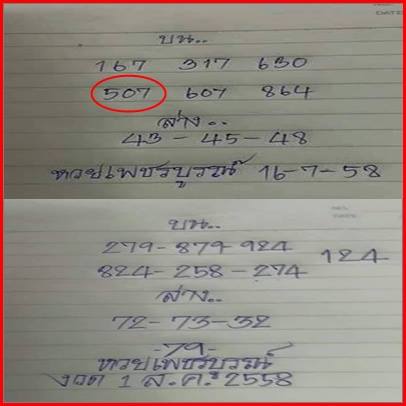 บน..
167 317 630
507 607 864
ล่าง..
43 - 45 - 48
หวยเพชรบูรณ์ 16-7-58
บน..
279-879-924
824-258-274 124
ล่าง..
72-73-32
-79-
หวยเพชรบูรณ์
งวด 1 ส.ค. 2558